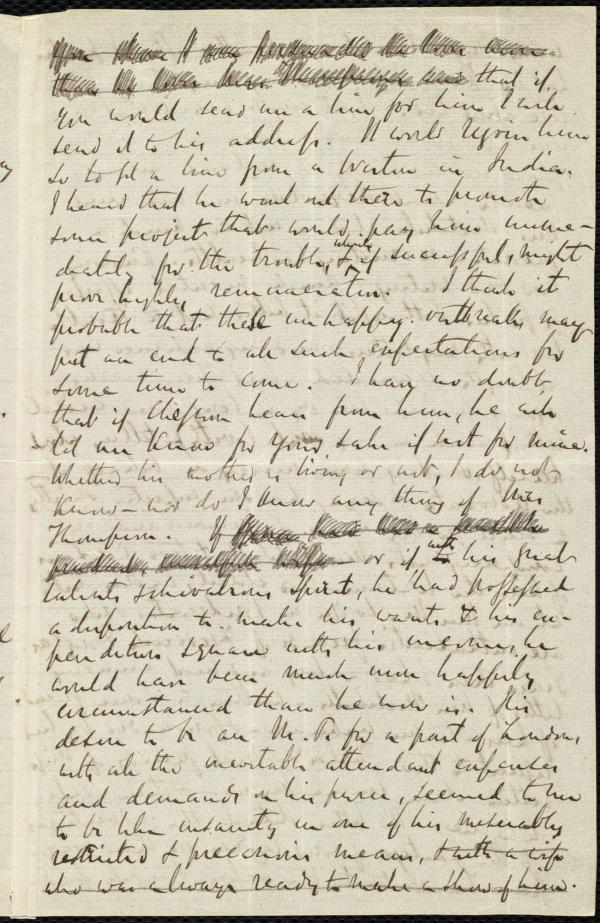 that if
you would send me a line for him I will
send it to his address. It would rejoice him
so to get a line from a Weston in India.
I heard that he went out there to promote
some projects that would pay him imme-
diately for the trouble, & if successful, might
prove highly remunerative. I think it
probable that these unhappy outbreaks may
put an end to all such expectations for
some time to come. I have no doubt,
that if Chesson hears from him, he will
let me know for your sake if not for mine.
Whether his mother is living or not, I do not
know – nor do I know any thing of Mrs
Thompson. If
– or if with his great
talents & chivalrous spirit, he had possessed
a disposition to make his wants & his ex-
penditure square with his income, he
would have been much more happily
circumstanced than he now is. His
desire to be an M.P. for a part of London,
with all the inevitable attendant expenses
and demands on his purse, seemed to me
to be like insanity in one of his miserably
restricted & precarious means, & with a wife
who was always ready to make a show of him.